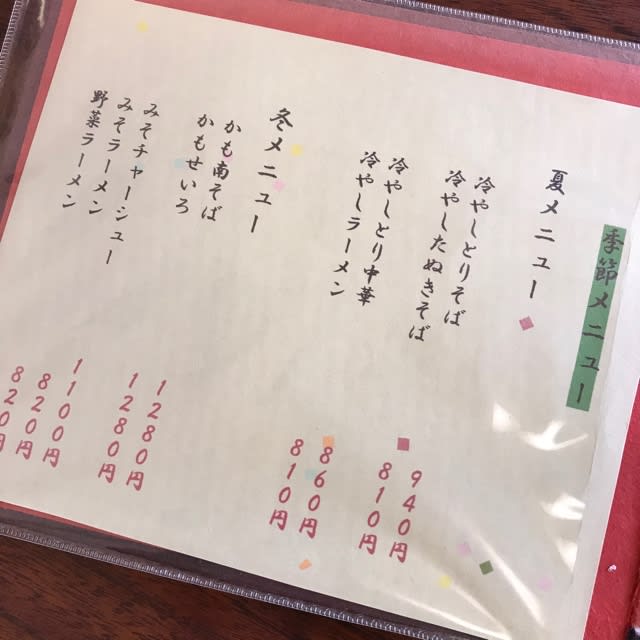 季節メニュー
夏メニュー
冷やしとりそば 940円
冷やしたぬきそば 810円
冷やしとり中華 860円
冷やしラーメン 810円
冬メニュー
かも南そば 1280円
かもせいろ 1280円
みそチャーシュー 1100円
みそラーメン 820円
野菜ラーメン 820円